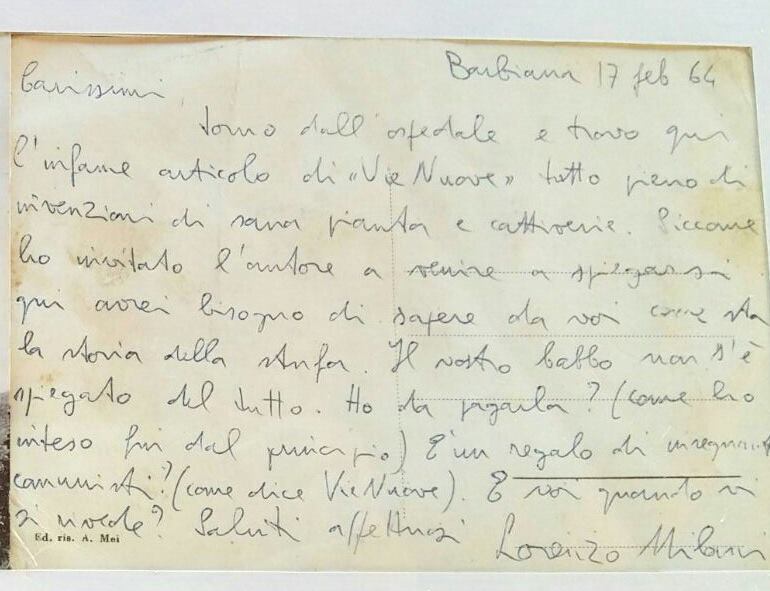 Barbiana 17 feb 64
Carissimi,
torno dall'ospedale e trovo qui
l'infame articolo di «Vie Nuove» tutto pieno di
invenzioni di sana pianta e cattiverie. Siccome
ho invitato l'autore a venire a spiegarsi
qui avrei bisogno di sapere da voi come sta
la storia della stufa. Il vostro babbo non s'è
spiegato del tutto. Ho da pagarla? (come ho
inteso fin dal principio) È un regalo di insegnanti
comunisti? (come dice Vie Nuove). E voi quando vi
si rivede? Saluti affettuosi
Ed. ris. A. Mei
Lorenzo Milani